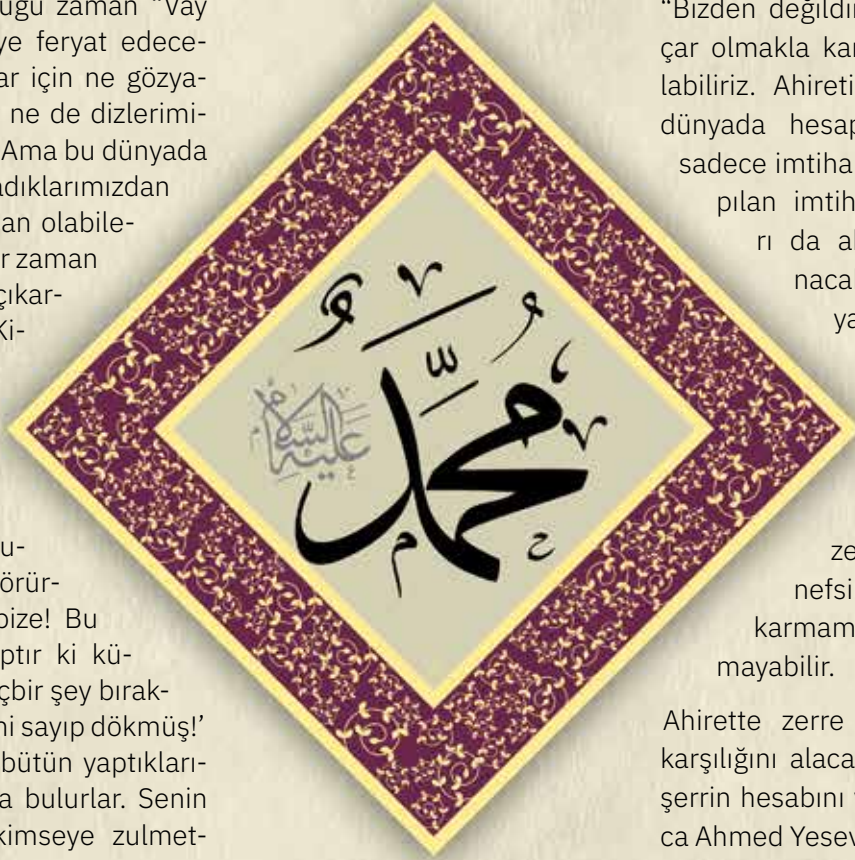 duğu zaman "Vay
ye feryat edece-
ar için ne gözya-
ne de dizlerimi-
Ama bu dünyada
adıklarımızdan
an olabile-
r zaman
çıkar-
Ki-
u-
örür-
bize! Bu
ptır ki kü-
çbir şey bırak-
ni sayıp dökmüş!'
bütün yaptıkları-
a bulurlar. Senin
kimseye zulmet-
محمد
عليه السلام
"Bizden değildir
çar olmakla kar
labiliriz. Ahireti
dünyada hesap
sadece imtiha
pılan imtih
rı da a
naca
ya
ze
nefsi
karmam
mayabilir.
Ahirette zerre
karşılığını alaca
şerrin hesabını
ca Ahmed Yesev